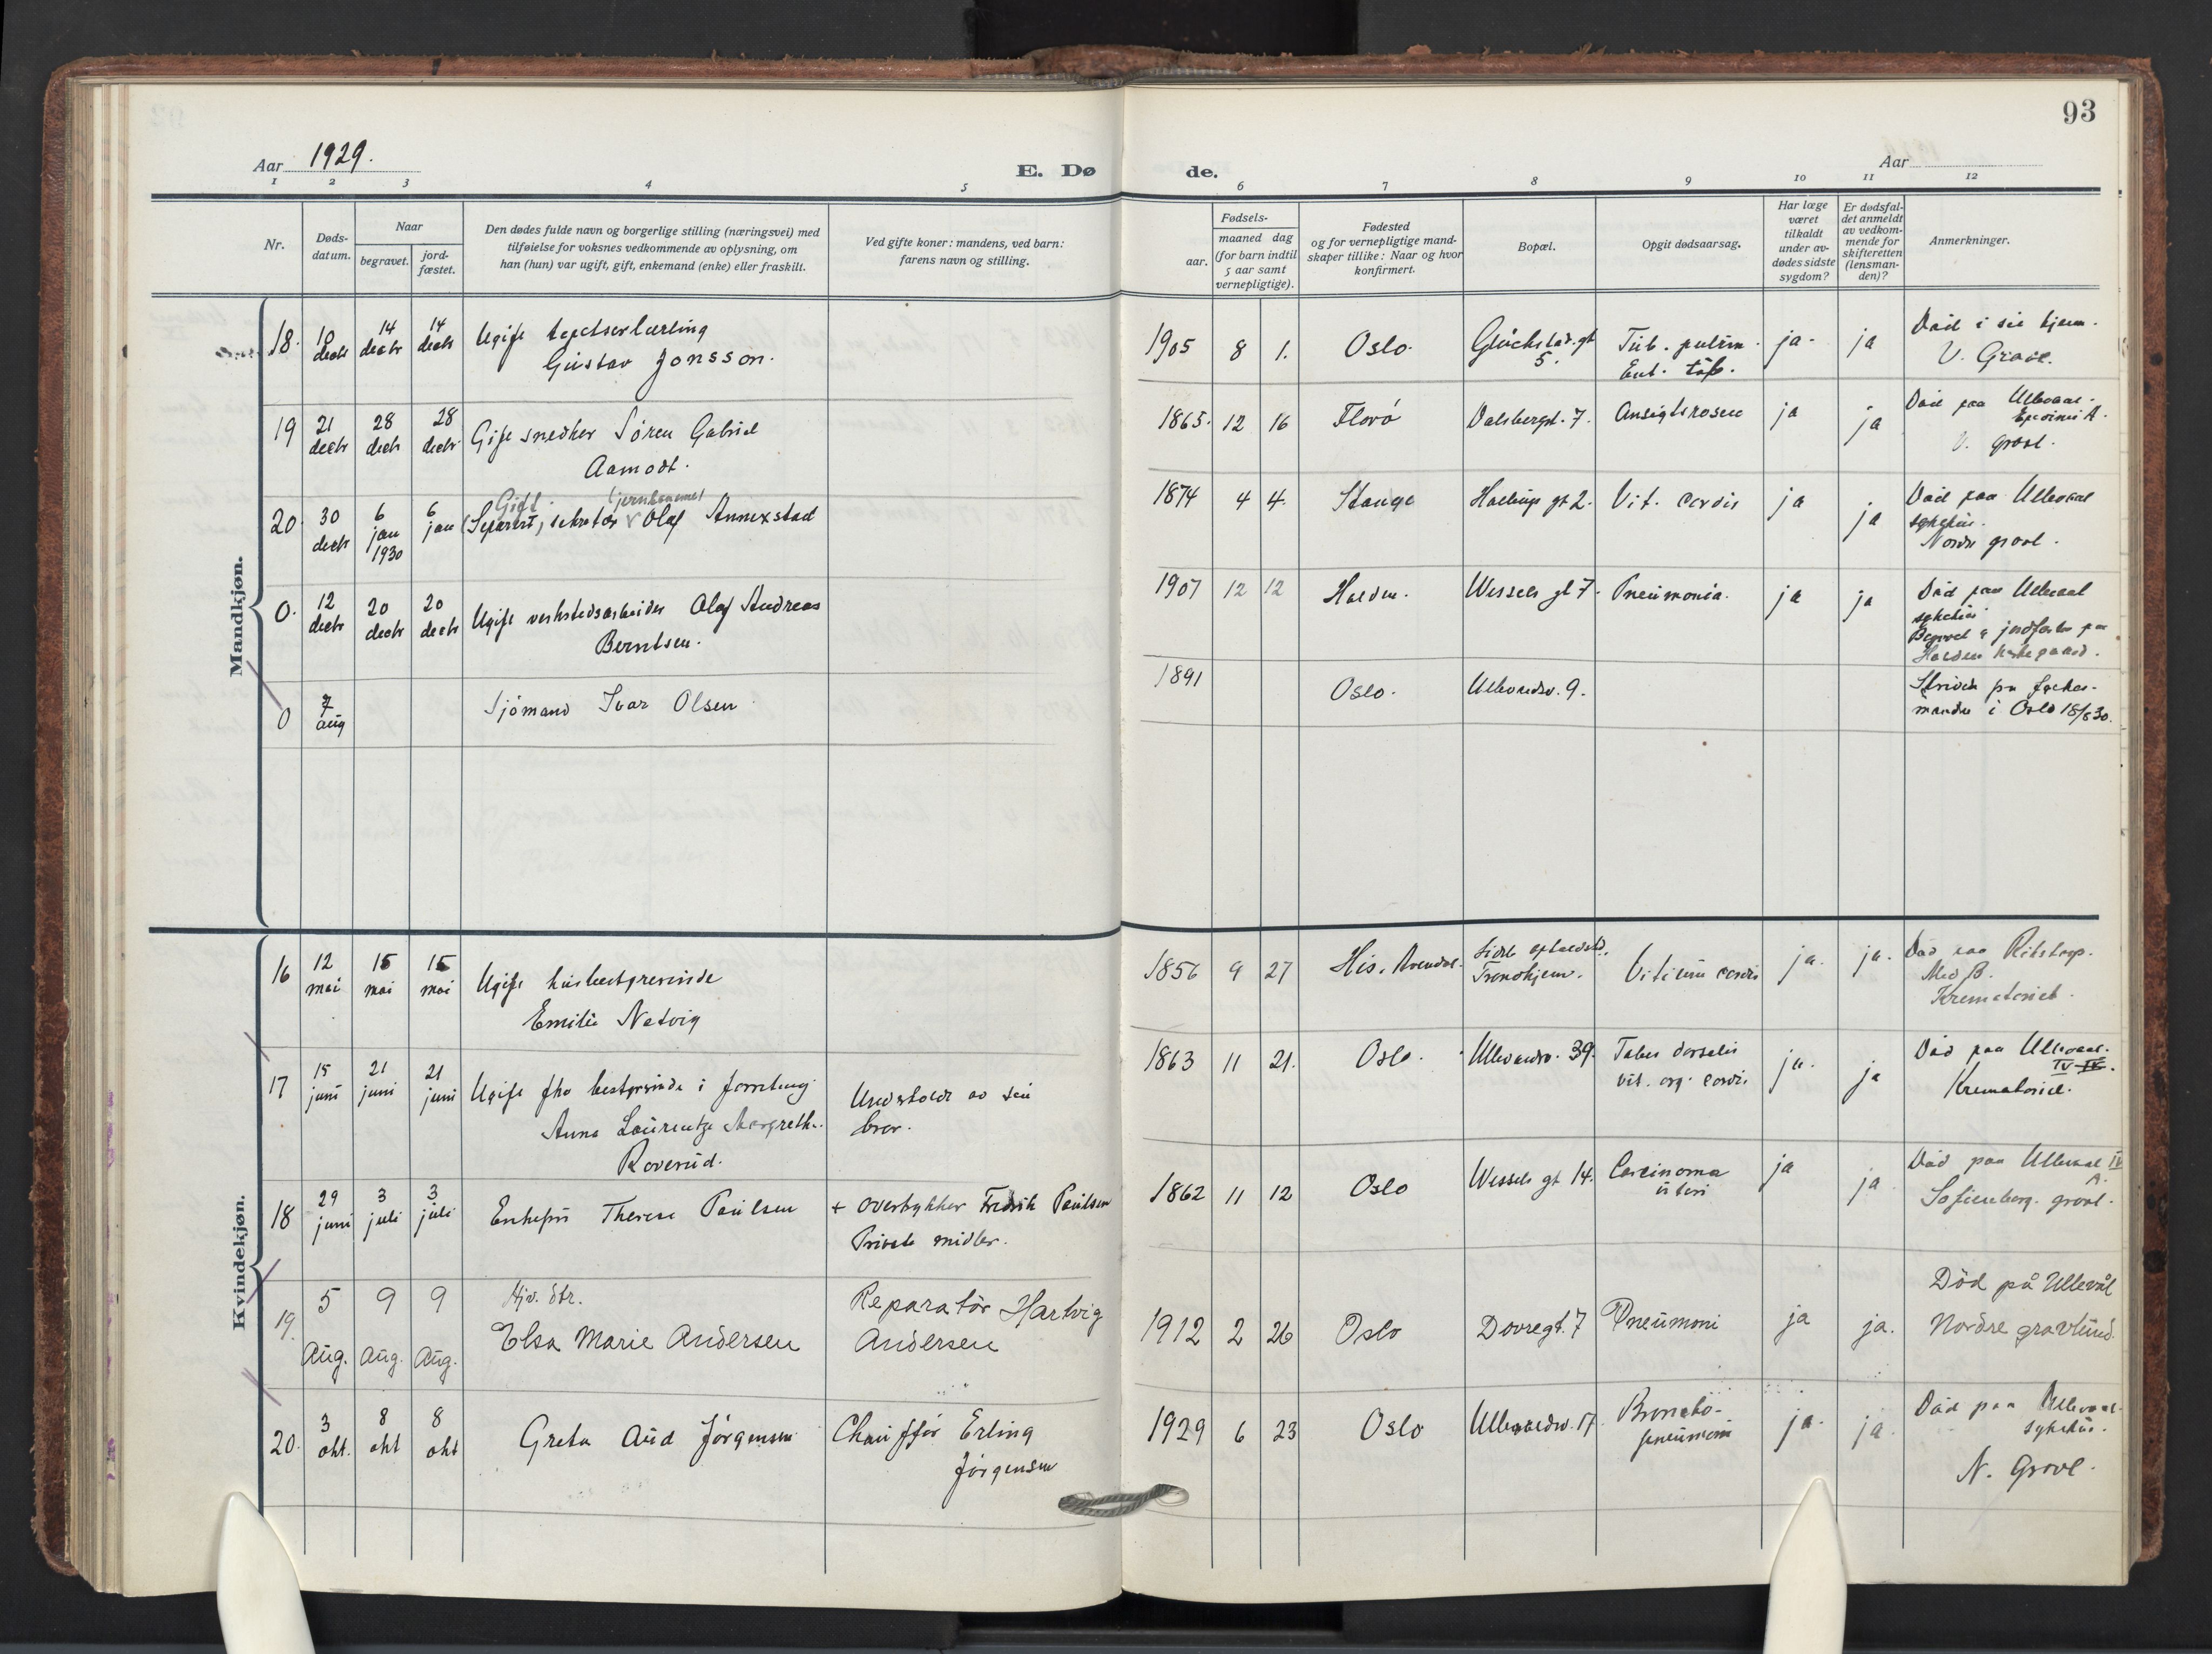 93
Aar 1929.
E. Dø
de.
Aar
1 2 3 4 5 6 7 8 9 10 11 12
Nr.
Døds-
datum.
Naar
begravet.
jord-
fæstet.
Den dødes fulde navn og borgerlige stilling (næringsvei) med
tilføielse for voksnes vedkommende av oplysning, om
han (hun) var ugift, gift, enkemand (enke) eller fraskilt.
Ved gifte koner: mandens, ved barn:
farens navn og stilling.
Fødsels-
aar.
maaned dag
(for barn indtil
5 aar samt
vernepligtige).
Fødested
og for vernepligtige mand-
skaper tillike: Naar og hvor
konfirmert.
Bopæl.
Opgit dødsaarsag.
Har læge
været
tilkaldt
under av-
dødes sidste
sygdom?
Er dødsfal-
det anmeldt
av vedkom-
mende for
skifteretten
(lensman-
den)?
Anmerkninger.
Mandkjøn.
18. 10 decbr 14 decbr 14 decbr Ugift
Gustav Jonsson.
1905 8 1. Oslo. Glückstad.gt 5. Tub. pulm. Ent. tub. ja. ja Död i sit hjem.
V. Gravl.
19 21 decbr 28 decbr 28 decbr Gift snedker Sören Gabriel
Aamodt.
1865. 12 16 Florö Dalsbergst. 7. Ansigtsrosen ja ja Död paa Ullevaal.
V. gravl.
20 30 decbr 6 jan 1930 6 jan Gift (jernbanene)
(Separert), sekretær Olaf Annexstad
1874 4 4. Stange gt 2. Vit. cordis ja ja Död paa Ullevaal
sykehus.
Nordre gravl.
0. 12 decbr 20 decbr 20 decbr Ugift verkstedsarbeider Olaf Andreas
Berntsen.
1907 12 12 Halden. Wessels gt 7. Pneumonia. ja ja Död paa Ullevaal
sykehus
Begravet & jordfæstet paa
Halden kirkegaard.
0 7 aug Sjömand Ivar Olsen
1891 Oslo. Ullevaalsv. 9.
i Oslo 18/8 30.
Kvindekjøn.
16 12 mai 15 mai 15 mai Ugift husbestyrerinde
Emilie Natvig
1856 9 27 His. Arendal. Sidste opholdsted.
Trondhjem. Vitium cordis ja. ja. Död paa Rikshosp.
Med B.
Krematoriet.
17 15 juni 21 juni 21 juni Ugift fhv bestyrerinde i forretning
Anna Laurentze Margrethe
Roverud.
Understöttet av sin
bror.
1863 11 21. Oslo. Ullevaalsv. 39. Tabes dorsalis
vit. org. cordis ja. ja Död paa Ullevaal.
IV
Krematoriet.
18 29 juni 3 juli 3 juli Enkefru Therese Paulsen
+ overbykker Fredrik Paulsen
Private midler.
1862 11 12 Oslo Wessels gt 14. Carcinoma
uteri ja ja Död paa Ullevaal IV
A.
Sofienberg. gravl.
19. 5 Aug. 9 Aug. 9 Aug. Hjv. dtr.
Elsa Marie Andersen
Reparatör Hartvig
Andersen
1912 2 26 Oslo Dovregt. 7 Pneumoni ja ja. Död på Ullevål
Nordre gravlund.
20. 3 okt. 8 okt 8 okt Greta Aud Jörgensen
Chaufför Erling
Jörgensen
1929 6 23 Oslo Ullevaalsv. 17. Broncho-
pneumoni ja. ja. Död paa Ullevaal
sykehus.
N. Gravl.